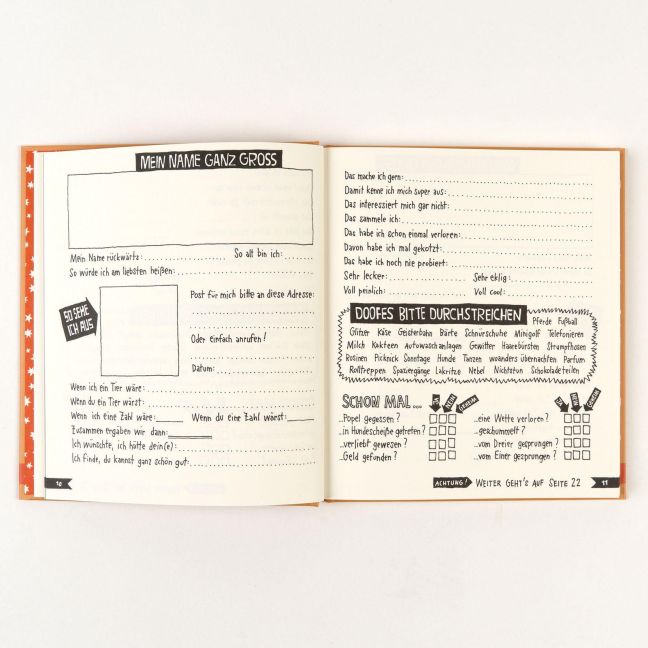 MEIN NAME GANZ GROSS
Mein Name rückwärts:
So alt bin ich:
So würde ich am liebsten heißen:
SO SEHE ICH AUS
Post für mich bitte an diese Adresse:
Oder einfach anrufen!
Datum:
Wenn ich ein Tier wäre:
Wenn du ein Tier wärst:
Wenn ich eine Zahl wäre:
Wenn du eine Zahl wärst:
Zusammen ergäben wir dann:
Ich wünschte, ich hätte dein(e):
Ich finde, du kannst ganz schön gut:
10
Das mache ich gern:
Damit kenne ich mich super aus:
Das interessiert mich gar nicht:
Das sammele ich:
Das habe ich schon einmal verloren:
Davon habe ich mal gekotzt:
Das habe ich noch nie probiert:
Sehr lecker:
Sehr eklig:
Voll peinlich:
Voll cool:
DOOFES BITTE DURCHSTREICHEN
Pferde Fußball
Glitzer Käse Geisterbahn Bärte Schnürschuhe Minigolf Telefonieren
Milch Kakteen Autowaschanlagen Gewitter Haarebürsten Strumpfhosen
Rosinen Picknick Sonntage Hunde Tanzen woanders übernachten Parfum
Rolltreppen Spaziergänge Lakritze Nebel Nichtstun Schokoladeteilen
SCHON MAL...
JA
NEIN
..Popel gegessen?
..in Hundescheiße getreten?
..verliebt gewesen?
..Geld gefunden?
..eine Wette verloren?
..geschummelt?
..vom Dreier gesprungen?
..vom Einer gesprungen?
ACHTUNG! WEITER GEHT'S AUF SEITE 22
11